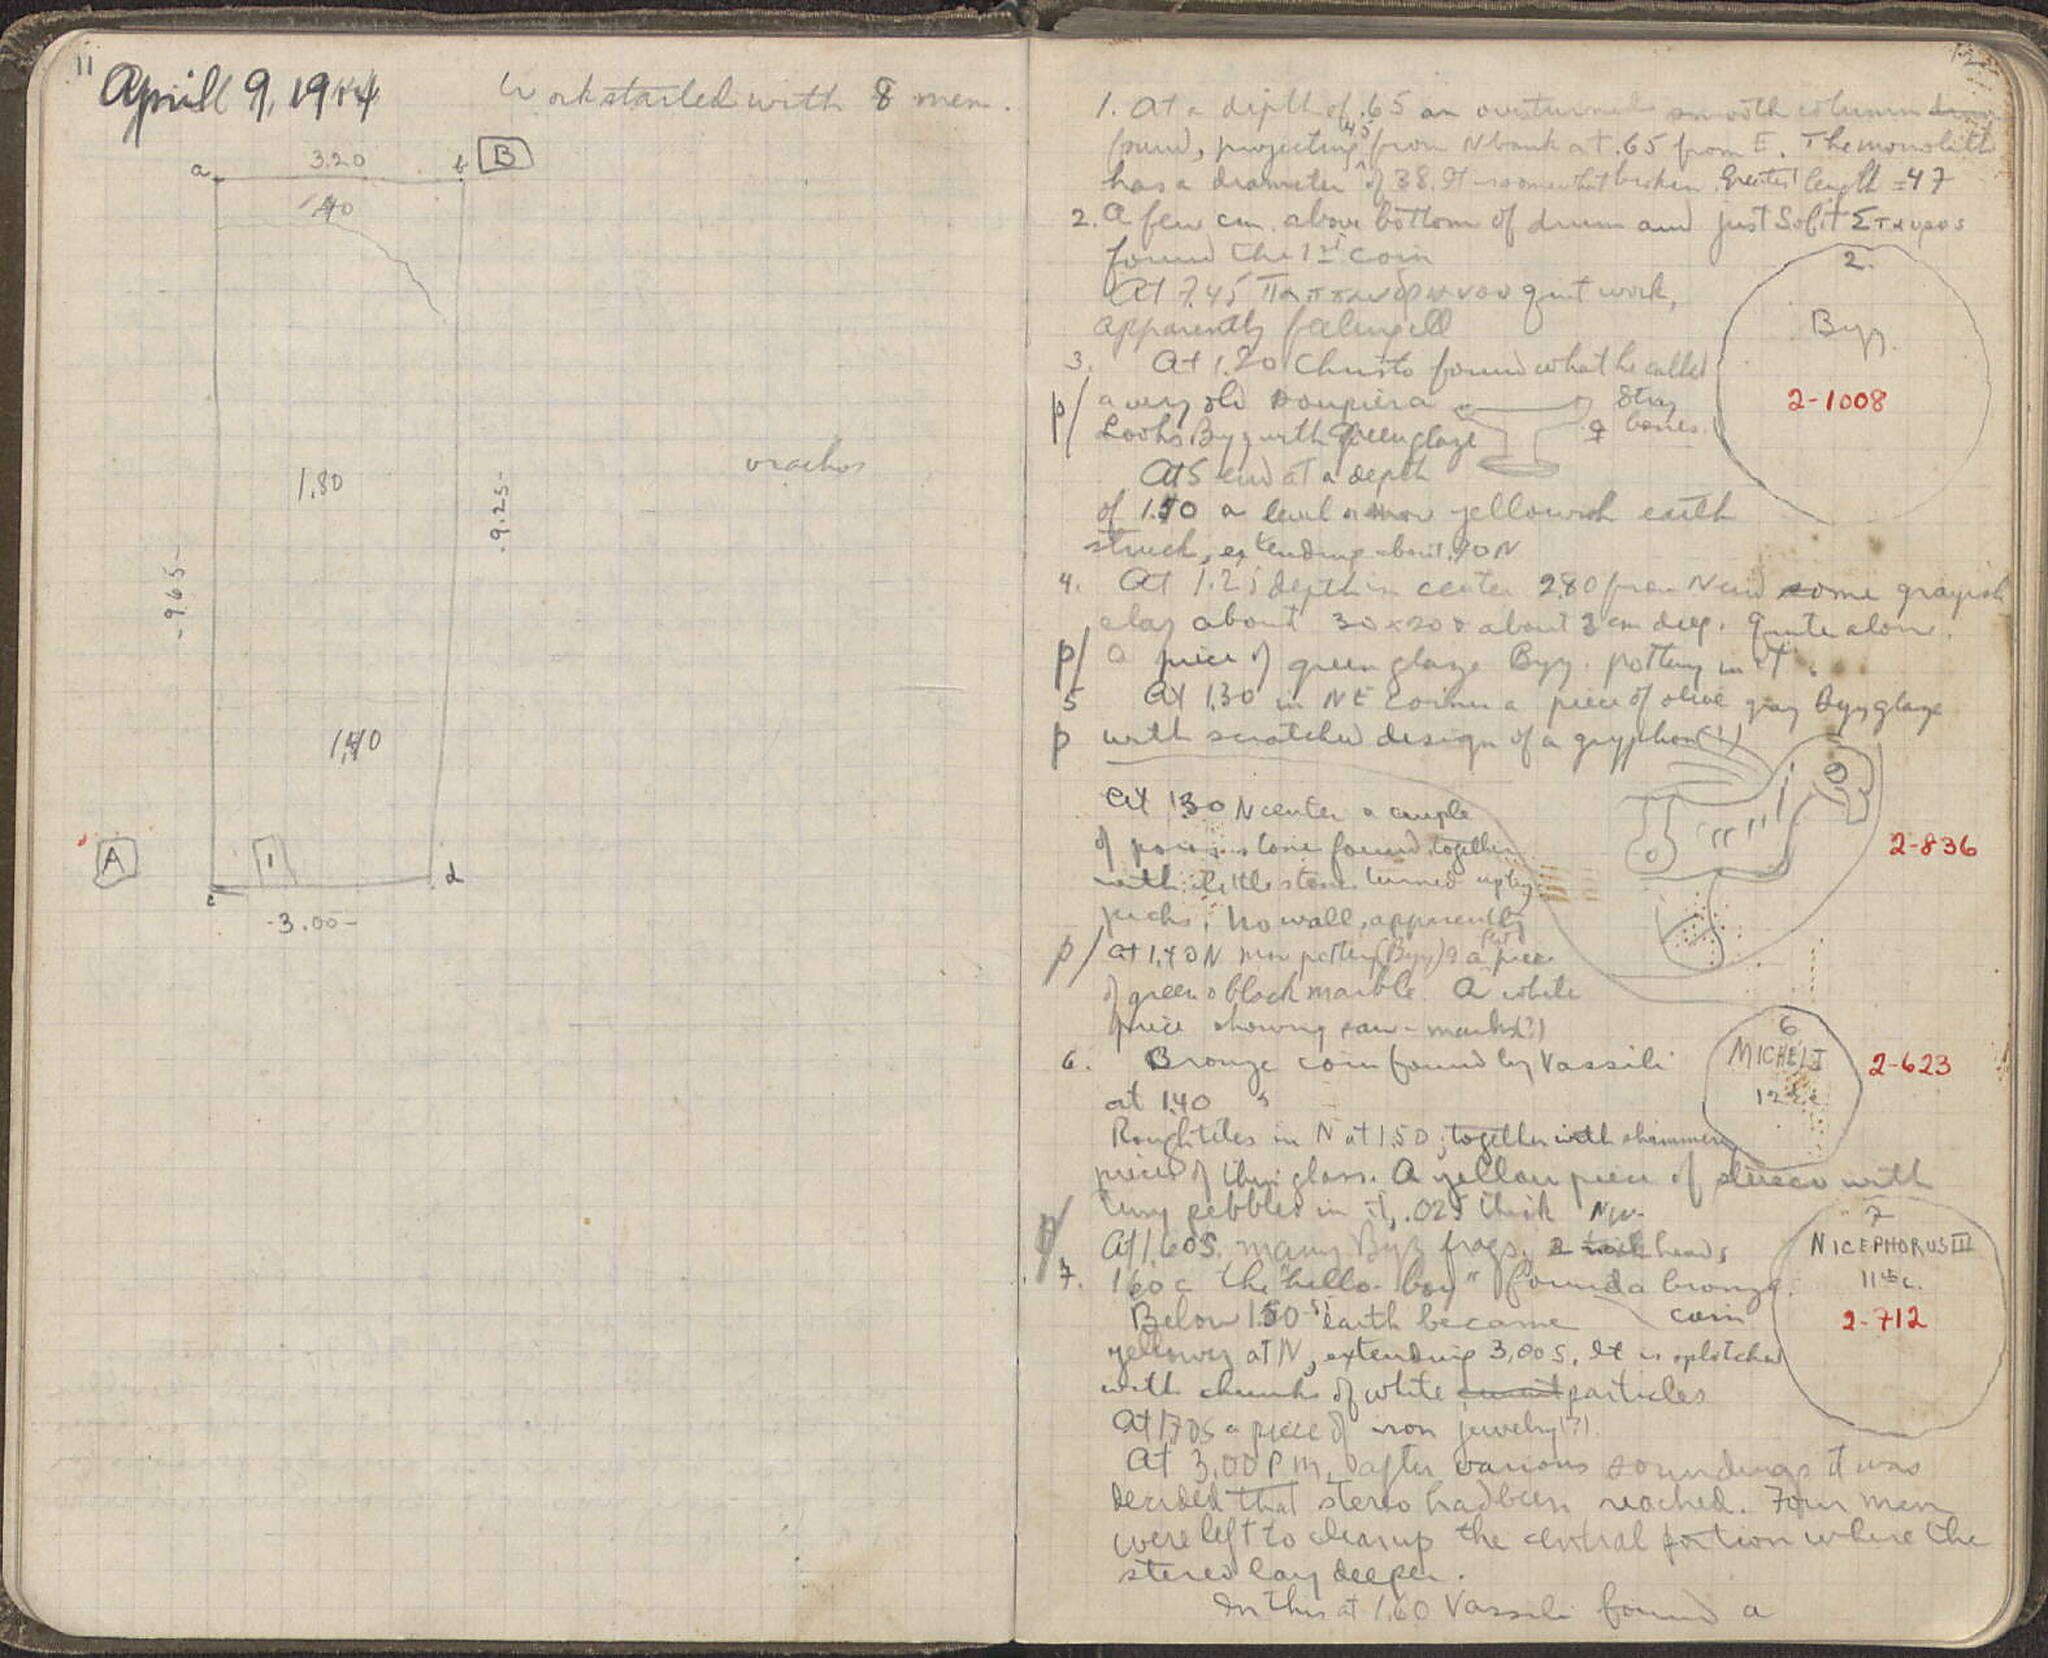 11
April 9, 19
Work started with 8 men.
a
3.20
b
B
1.80
9.25
vrachos
965
A
1
c
d
3.00
1. At a depth of .65 an overturned smooth column drum
found, projecting .45 from N bank at .65 from E. The monolith
has a diameter of 38. It is somewhat broken. Greatest length = 47
2. A few cm. above bottom of drum and just S of it Σταυρος
found the 1st coin
2.
Byz.
2-1008
At 7.45 quit work,
apparently feeling ill
3. At 1.20 Christo found what he called
p/ a very old soupiera
Stray
bones
Looks Byz with green glaze
At S end at a depth
of a level yellowish earth
struck, extending about N
4. At 1.25 depth in center 2.80 from N end some grayish
clay about 30 x 20 & about 3 cm deep. Quite alone.
p/ a piece of green glaze Byz. pottery in it.
5 At 1.30 in NE corner a piece of olive gray Byz glaze
p with scratched design of a gryphon (?)
2-836
At 1.30 N center a couple
of poros stone found, together
with little stones turned up by
picks. No wall, apparently
p/ at 1.40 N more pottery (Byz) & a piece
of green & black marble. A white
piece showing saw-marks (?)
6. Bronze coin found by Vassili
at 1.40
6
MICHEL I
12th c.
2-623
Rough tiles in N at 1.50, together with shimmery
piece of thin glass. A yellow piece of stucco with
tiny pebbles in it, .025 thick
At 1.60 S. many Byz frags.
7. 1.60 c the "hello-boy" found a bronze
coin
7
NICEPHORUS III
11th c.
2-712
Below 1.50 earth became
yellower at N, extending 3.00 S. It is splotched
with chunks of white particles
At 1.70 S a piece of iron jewelry (?)
At 3.00 P.M. after various soundings it was
decided that stereo had been reached. Four men
were left to clean up the central portion where the
stereo lay deeper.
In this at 1.60 Vassili found a